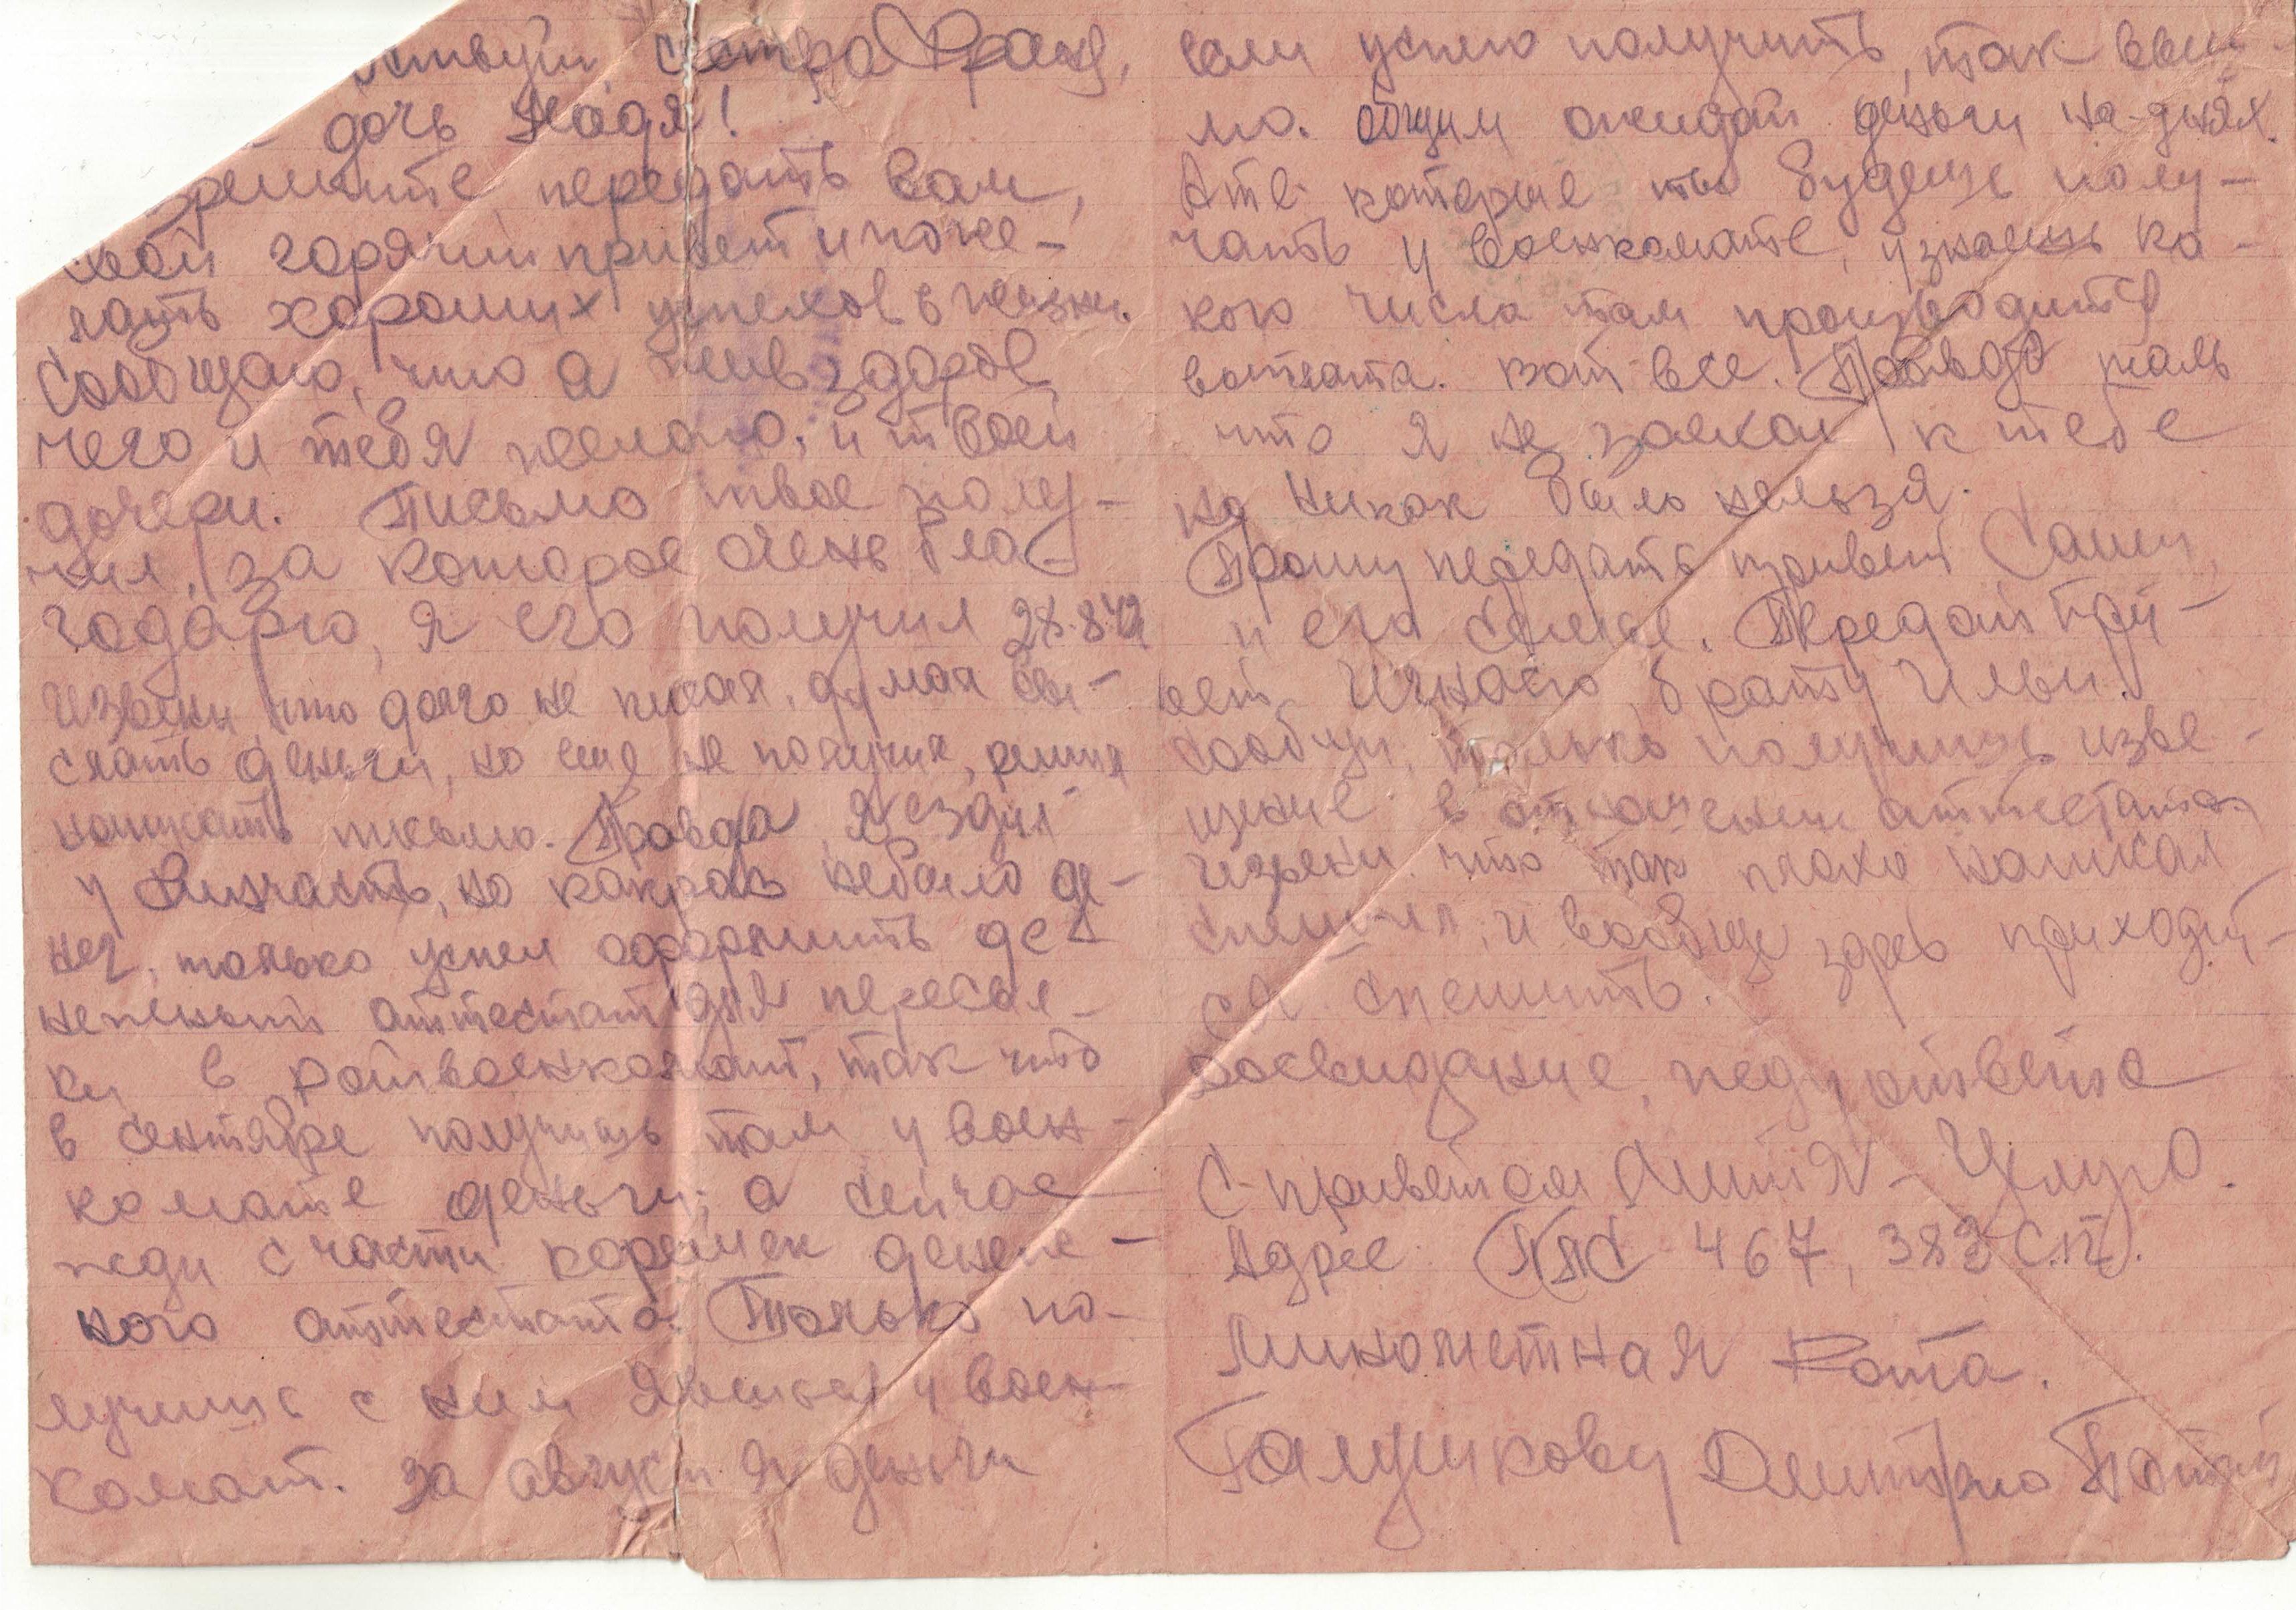 ствуй сестра Фрося,
дочь Надя!
зрешите, передать Вам,
свой горячий привет и поже-
лать хороших успехов в жизни.
Сообщаю, что я жив здоров
чего и тебя желаю, и твоей
дочери. Письмо твое полу-
чил, за которое очень бла-
годарю, я его получил 28.8.42
Извени, что долго не писал, думал вы-
слать деньги, но еще не получил, решил
написать письмо. Правда я ездил
у часть, но какраз небыло де-
нег, только успел оформить де-
нежный аттестат для пересыл-
ки в Райвоенкомат, так что
в сентябре получишь там у воен-
комате деньги, а сейчас
жди с части корешек денеж-
ного аттестата. Только по-
лучишь с ним явишься у воен-
комат. За август я деньги
если успею получить, так выш
лю. общим ожидай деньги на-днях.
Ате которые ты будешь полу-
чать у Военкомате, узнаешь ка-
кого числа там производится
выплата. Вот все. Правда жаль
что я не заехал к тебе
но никак было нельзя.
Прошу передать привет Саши
и его семье. Передай при-
вет Игнасю, брату Ильи.
Сообщи, только получишь изве-
щение в отношении аттестата
Извени что так плохо написал
спешил, и вообще здесь приходит-
ся спешить.
Досвидание, жду ответа
С приветом Митя
Адрес ППС 467, 383 С.П.
Минометная Рота.
Галушкову Дмитрию